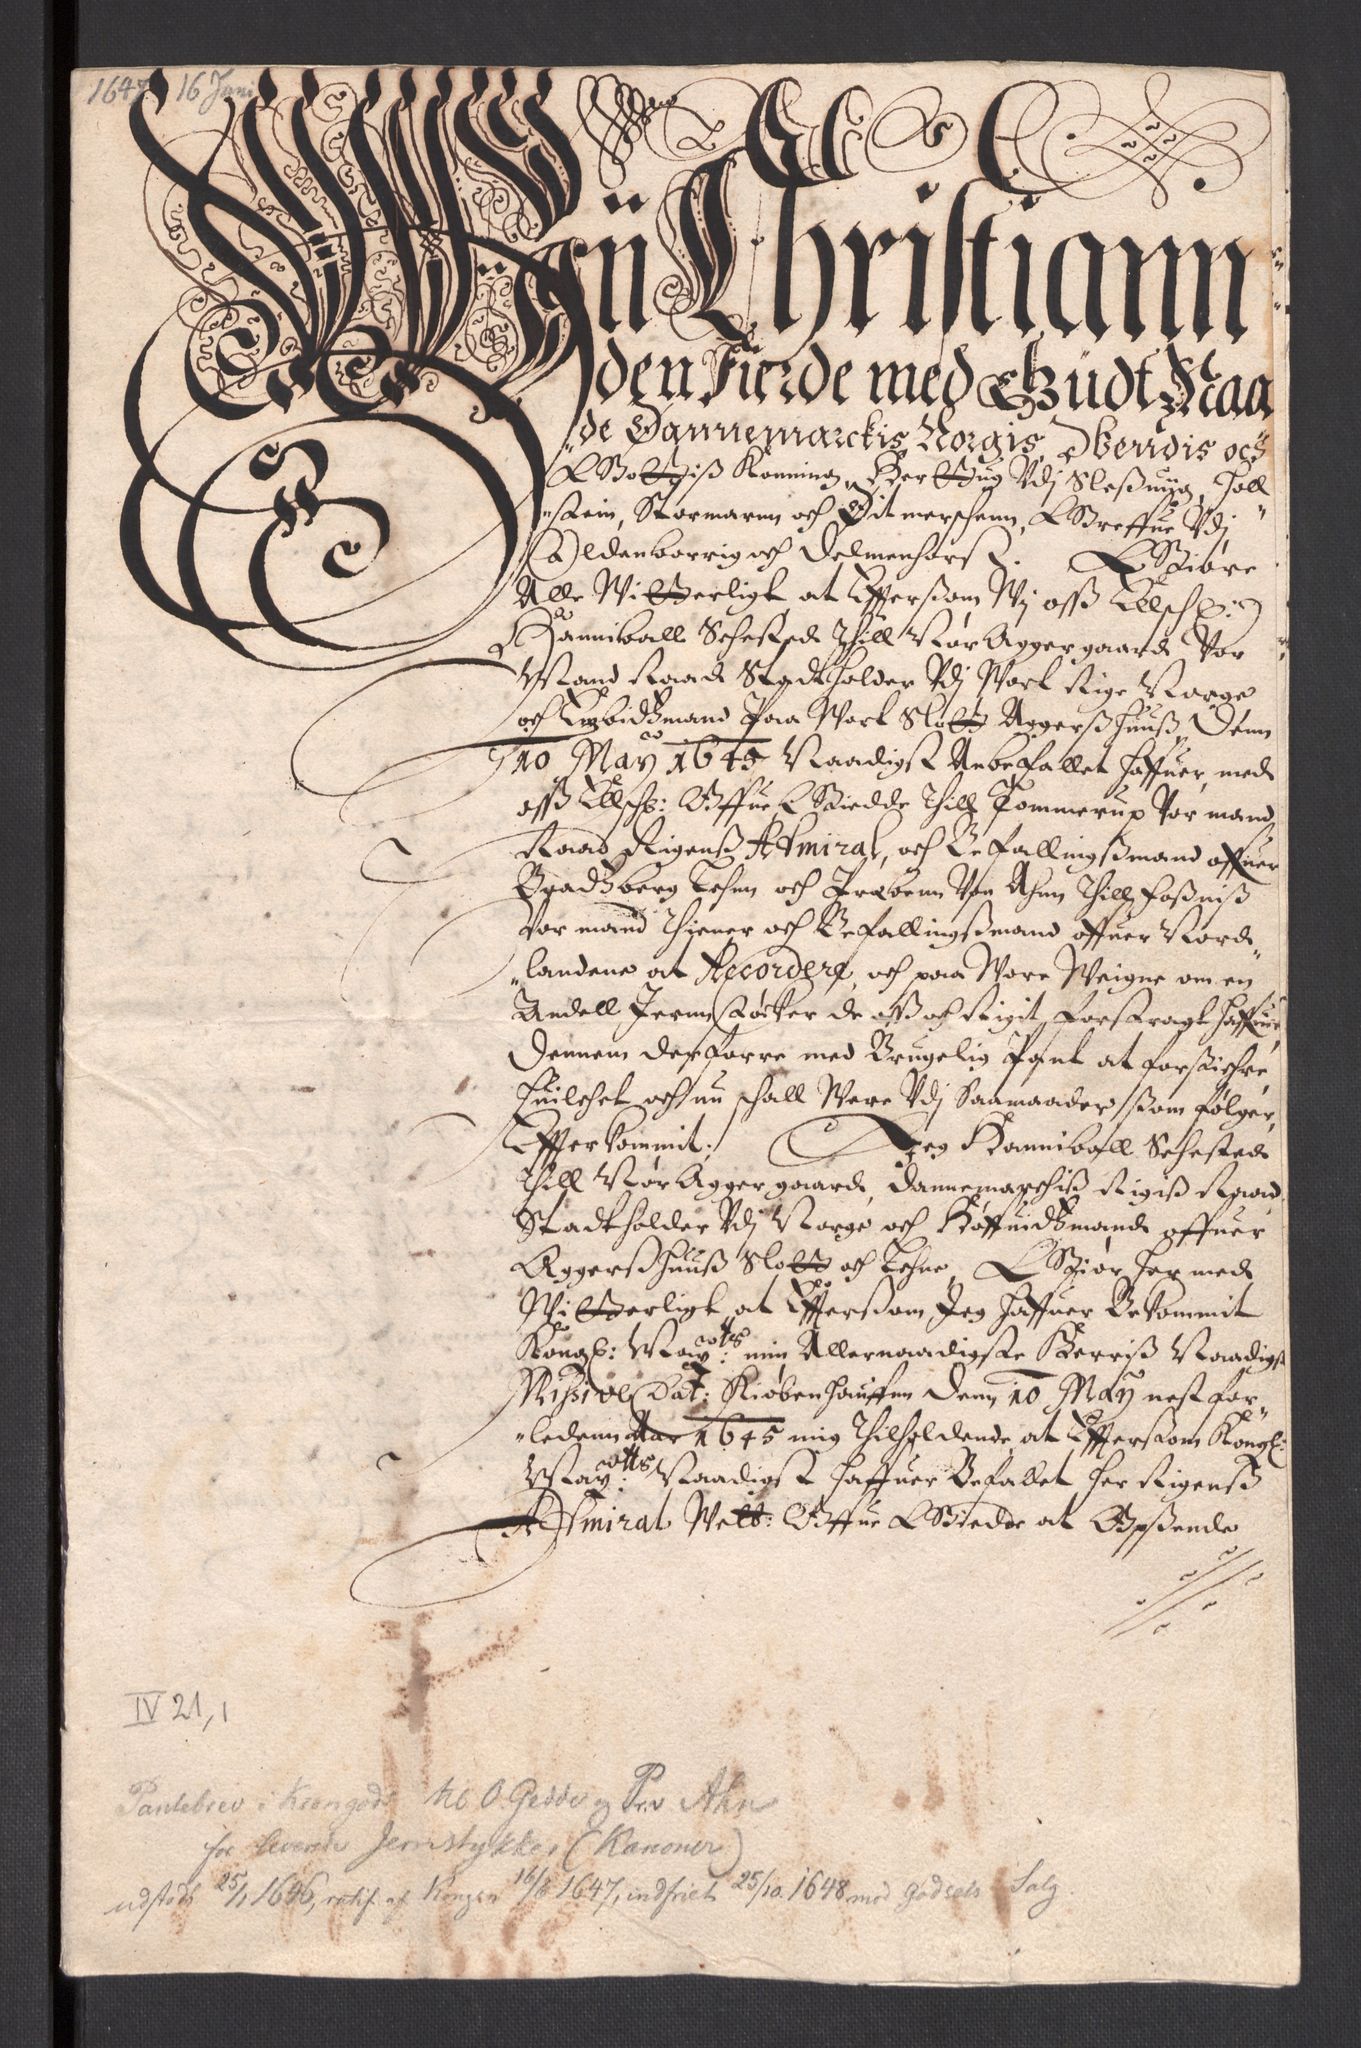 1647 16 Juni
Wii Christiann
den Fierde med Gudt Naa
de Dannemarckis, Norgis, Wendis och
Gottiß Konning, Herttug Vdj Sleßuiig, Holl
stein, Stormarnn och Ditmerschenn, Greffue Vdj
Oldenborrig och Delmenhorst. Giøre
Alle Witterligt, at Effterßom Wj oss Elsch:
Hanniball Sehested Thill Nør Aggergaardt Vor
Mand Raad Stadtholder Vdj Vort Rige Norge
och Embidtzmand Paa Vort Slott Aggerßhuuß, Denn
10 May 1645 Naadigst Anbefallet haffuer, med
oss Elsch: Offue Giedde Thill Tommerup Vor mand
Raad Rigenß Admiral, och Befallingßmand offuer
Bradtzberg Lehn och Prebenn Von Ahnn Thill Foßniß
Vor mand Thiener och Befallingßmand offuer Nord
landene at Accordere, och paa Vore Weigne om en
Andell Jernstöcker de oss och Rigit forstragt haffuer,
Dennem derforre med Brugelig Pant at forsichre,
Huilchet och nu schall Were Vdj Saamaader ßom følger,
Effterkommit; Jeg Hanniball Sehested
Thill Nør Aggergaardt, Dannemarchiß Rigiß Raad
Stadtholder Vdj Norge och Høffuidtzmandt offuer
Aggerßhuuß Slott och Lehne, Giør her med
Witterligt, at Effterßom Jeg haffuer Bekommit
Kongl: May:tts min Allernaadigste Herriß Naadigst
Missive Dat: Kiøbenhauffnn Denn 10 May nest for
ledenn Aar 1645 mig Thilholdende, at Effterßom Kongl:
May:tts Naadigst haffuer Befallet Her Rigenß
Admiral Welb: Offue Giedde at Opßende
IV 21,1
Pantebrev i Krongods til O. Gedde og Pr. v Ahn
for leverede Jernstykker (Kanoner)
udstedt 25/1 1646, ratif. af Kongen 16/6 1647, indfriet 25/10 1648 med Godsets Salg.